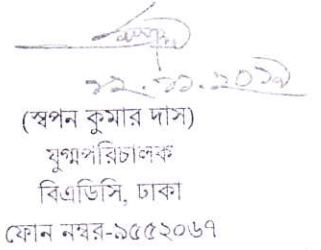 ১২.১১.২০১৯
(স্বপন কুমার দাস)
যুগ্মপরিচালক
বিএডিসি, ঢাকা
ফোন নম্বর-৯৫৫২০৬৭